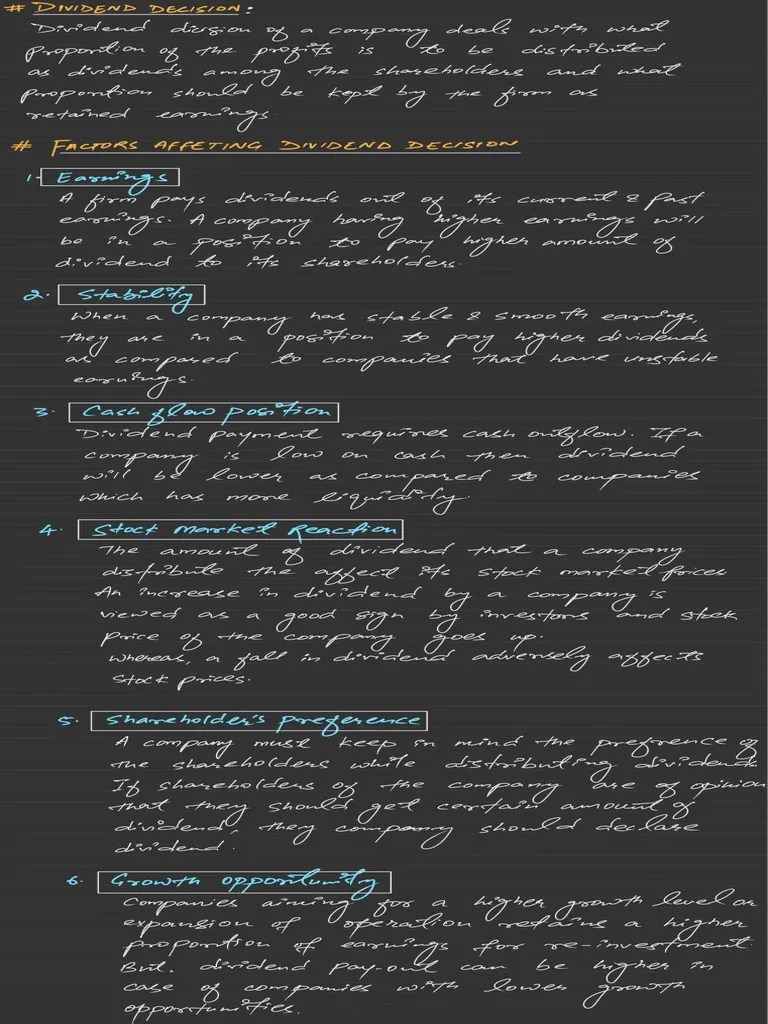 # DIVIDEND DECISION:
Dividend dicision of a company deals with what
proportion of the profits is to be distributed
as dividends among the shareholders and what
proportion should be kept by the firm as
retained earnings.
# FACTORS AFFETING DIVIDEND DECISION
1. Earnings
A firm pays dividends out of its current & past
earnings. A company having higher earnings will
be in a position to pay higher amount of
dividend to its shareholders.
2. Stability
When a company has stable & smooth earnings,
they are in a position to pay higher dividends
as compared to companies that have unstable
earnings.
3. Cash flow position
Dividend payment requires cash outflow. If a
company is low on cash then dividend
will be lower as compared to companies
which has more liquidity.
4. Stock market Reaction
The amount of dividend that a company
distribute the affect its stock market prices
An increase in dividend by a company is
viewed as a good sign by investors and stock
price of the company goes up.
whereas, a fall in dividend adversely affects
stock prices.
5. Shareholder's preference
A company must keep in mind the preference of
the shareholders while distributing dividends.
If shareholders of the company are of opinion
that they should get certain amount of
dividend, they company should declare
dividend.
6. Growth opportunity
Companies aiming for a higher growth level or
expansion of operation retains a higher
proportion of earnings for re-investment.
But. dividend pay-out can be higher in
case of companies with lower growth
opportunities.